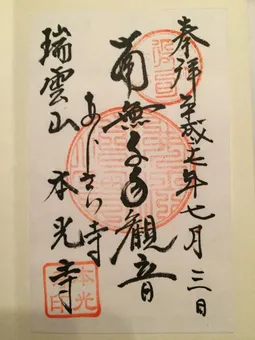 奉拝 平成七年七月三日
南無千手觀音
あじさい寺
瑞雲山 本光寺
本光寺印